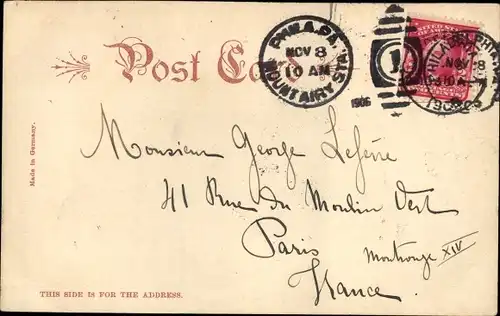 Post Card
PHILA. PA.
NOV 8
10 AM
MOUNT AIRY STA.
1906
1
NOV 8
Made in Germany.
Monsieur George Lefevre
41 Rue du Moulin Vert
Paris Montrouge XIV
France
THIS SIDE IS FOR THE ADDRESS.